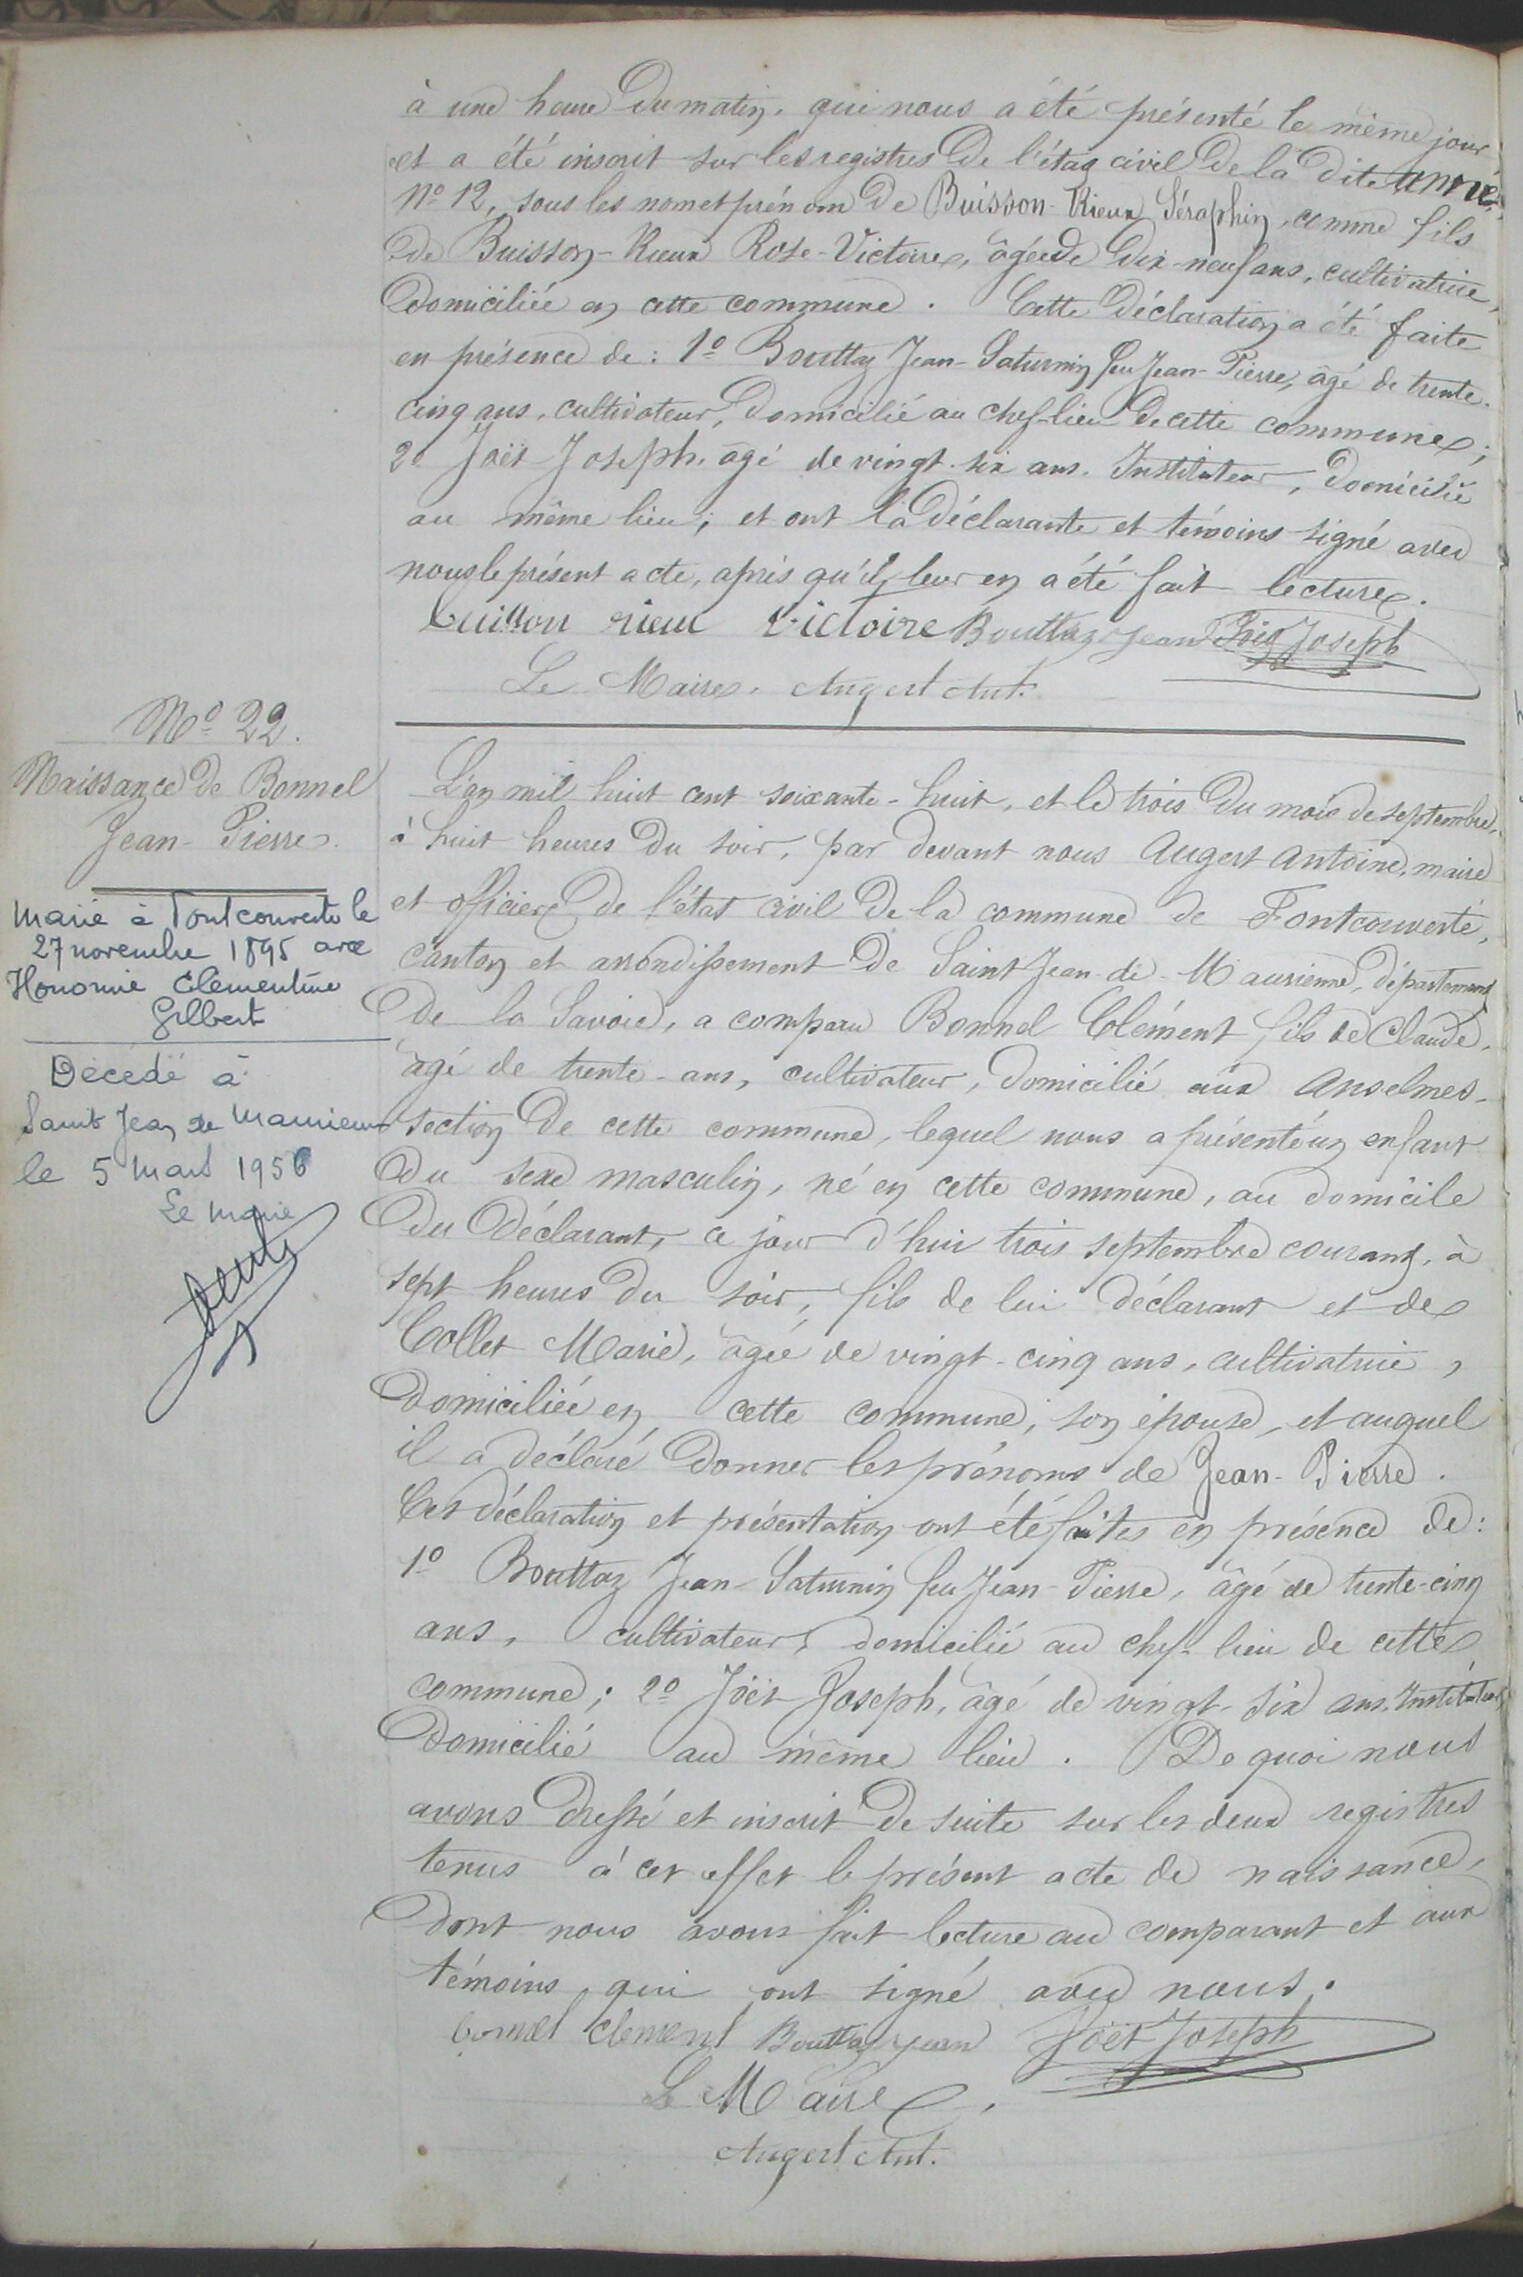 à une heure du matin, qui nous a été présenté le même jour
et a été inscrit sur les registres de l'état civil de la dite année,
N° 12, sous les nom et prénom de Buisson-Rieux Séraphin, comme fils
de Buisson-Rieux Rose-Victoire, âgée de dix-neuf ans, cultivatrice,
domiciliée en cette commune. Cette déclaration a été faite
en présence de : 1° Bouttaz Jean-Saturnin feu Jean-Pierre, âgé de trente-
cinq ans, cultivateur, domicilié au chef-lieu de cette commune;
2° Joët Joseph, âgé de vingt-six ans, Instituteur, domicilié
au même lieu; et ont la déclarante et témoins signé avec
nous le présent acte, après qu'il leur en a été fait lecture.
buisson rieux victoire Bouttaz jean Joët Joseph
Le Maire. Augert Ant.
N° 22.
Naissance de Bonnel
Jean-Pierre.
Marié à Fontcouverte le
27 novembre 1895 avec
Honorine Clémentine
Gilbert
Décédé à
Saint Jean de Maurienne
le 5 mars 1956
Le maire
L'an mil huit cent soixante-huit, et le trois du mois de septembre,
à huit heures du soir, par devant nous Augert Antoine, maire
et officier de l'état civil de la commune de Fontcouverte,
canton et arrondissement de Saint Jean-de-Maurienne, département
de la Savoie, a comparu Bonnel Clément fils de Claude,
âgé de trente-ans, cultivateur, domicilié aux Anselmes-
section de cette commune, lequel nous a présenté un enfant
du sexe masculin, né en cette commune, au domicile
du déclarant, ce jour d'hui trois septembre courant, à
sept heures du soir, fils de lui déclarant et de
Collet Marie, âgée de vingt-cinq ans, cultivatrice,
domiciliée en cette commune, son épouse, et auquel
il a déclaré donner les prénoms de Jean-Pierre.
Ces déclaration et présentation ont été faites en présence de :
1° Bouttaz Jean-Saturnin feu Jean-Pierre, âgé de trente-cinq
ans, cultivateur, domicilié au chef-lieu de cette
commune; 2° Joët Joseph, âgé de vingt-six ans, Instituteur,
domicilié au même lieu. De quoi nous
avons dressé et inscrit de suite sur les deux registres
tenus à cet effet le présent acte de naissance,
dont nous avons fait lecture au comparant et aux
témoins qui ont signé avec nous.
bonnel clement Bouttaz jean Joët Joseph
Le Maire,
Augert Ant.